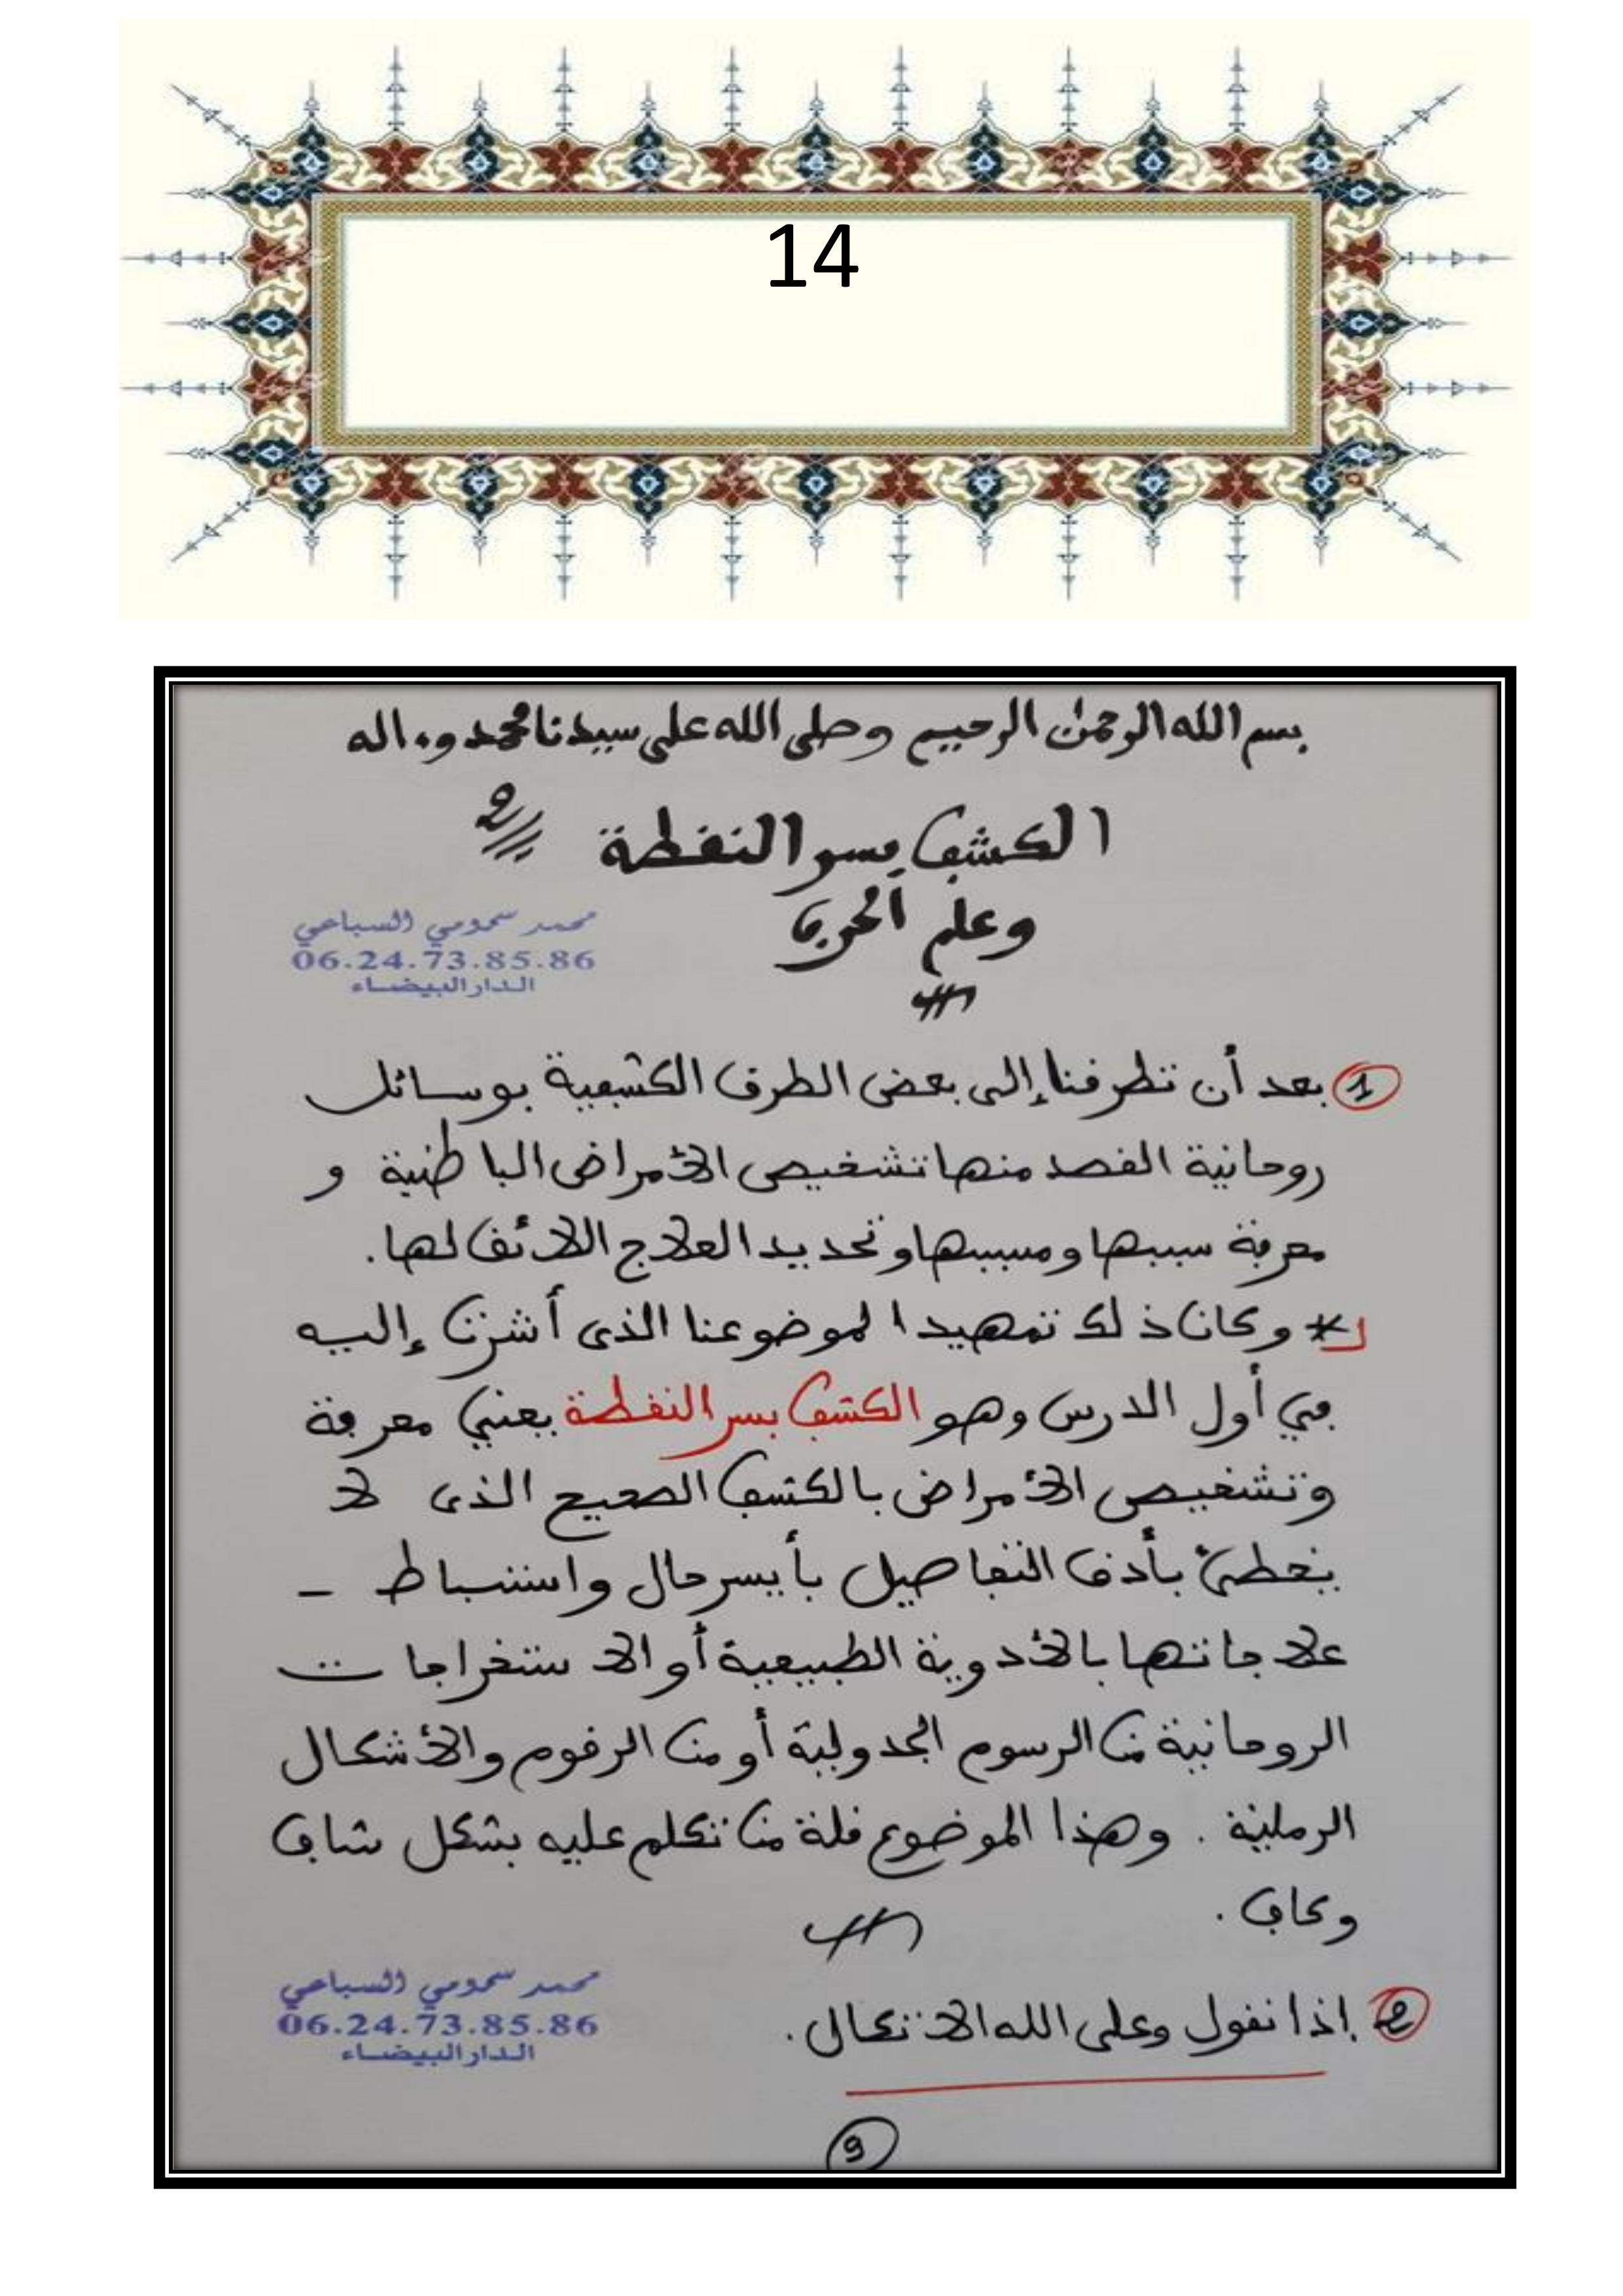 14
بسم الله الرحمن الرحيم وصلى الله على سيدنا محمد وءاله
الكشف بسر النقطة 2
وعلم الحرف
محمد سمومي السباعي
06.24.73.85.86
الدار البيضاء
1 بعد أن تطرقنا إلى بعض الطرق الكشفية بوسائل
روحانية القصد منها تشخيص الأمراض الباطنية و
معرفة سببها ومسببها وتحديد العلاج اللائق لها.
* وكان ذلك تمهيدا لموضوعنا الذى أشرت إليه
في أول الدرس وهو الكشف بسر النقطة يعني معرفة
وتشخيص الأمراض بالكشف الصحيح الذى لا
يخطئ بأدق التفاصيل بأيسر حال واستنباط -
علاجاتها بالأدوية الطبيعية أو الاستخراجات
الروحانية من الرسوم الجدولية أو من الرقوم والأشكال
الرملية . وهذا الموضوع قلة من تكلم عليه بشكل شاف
وكاف .
2 إذا نقول وعلى الله الاتكال .
محمد سمومي السباعي
06.24.73.85.86
الدار البيضاء
9